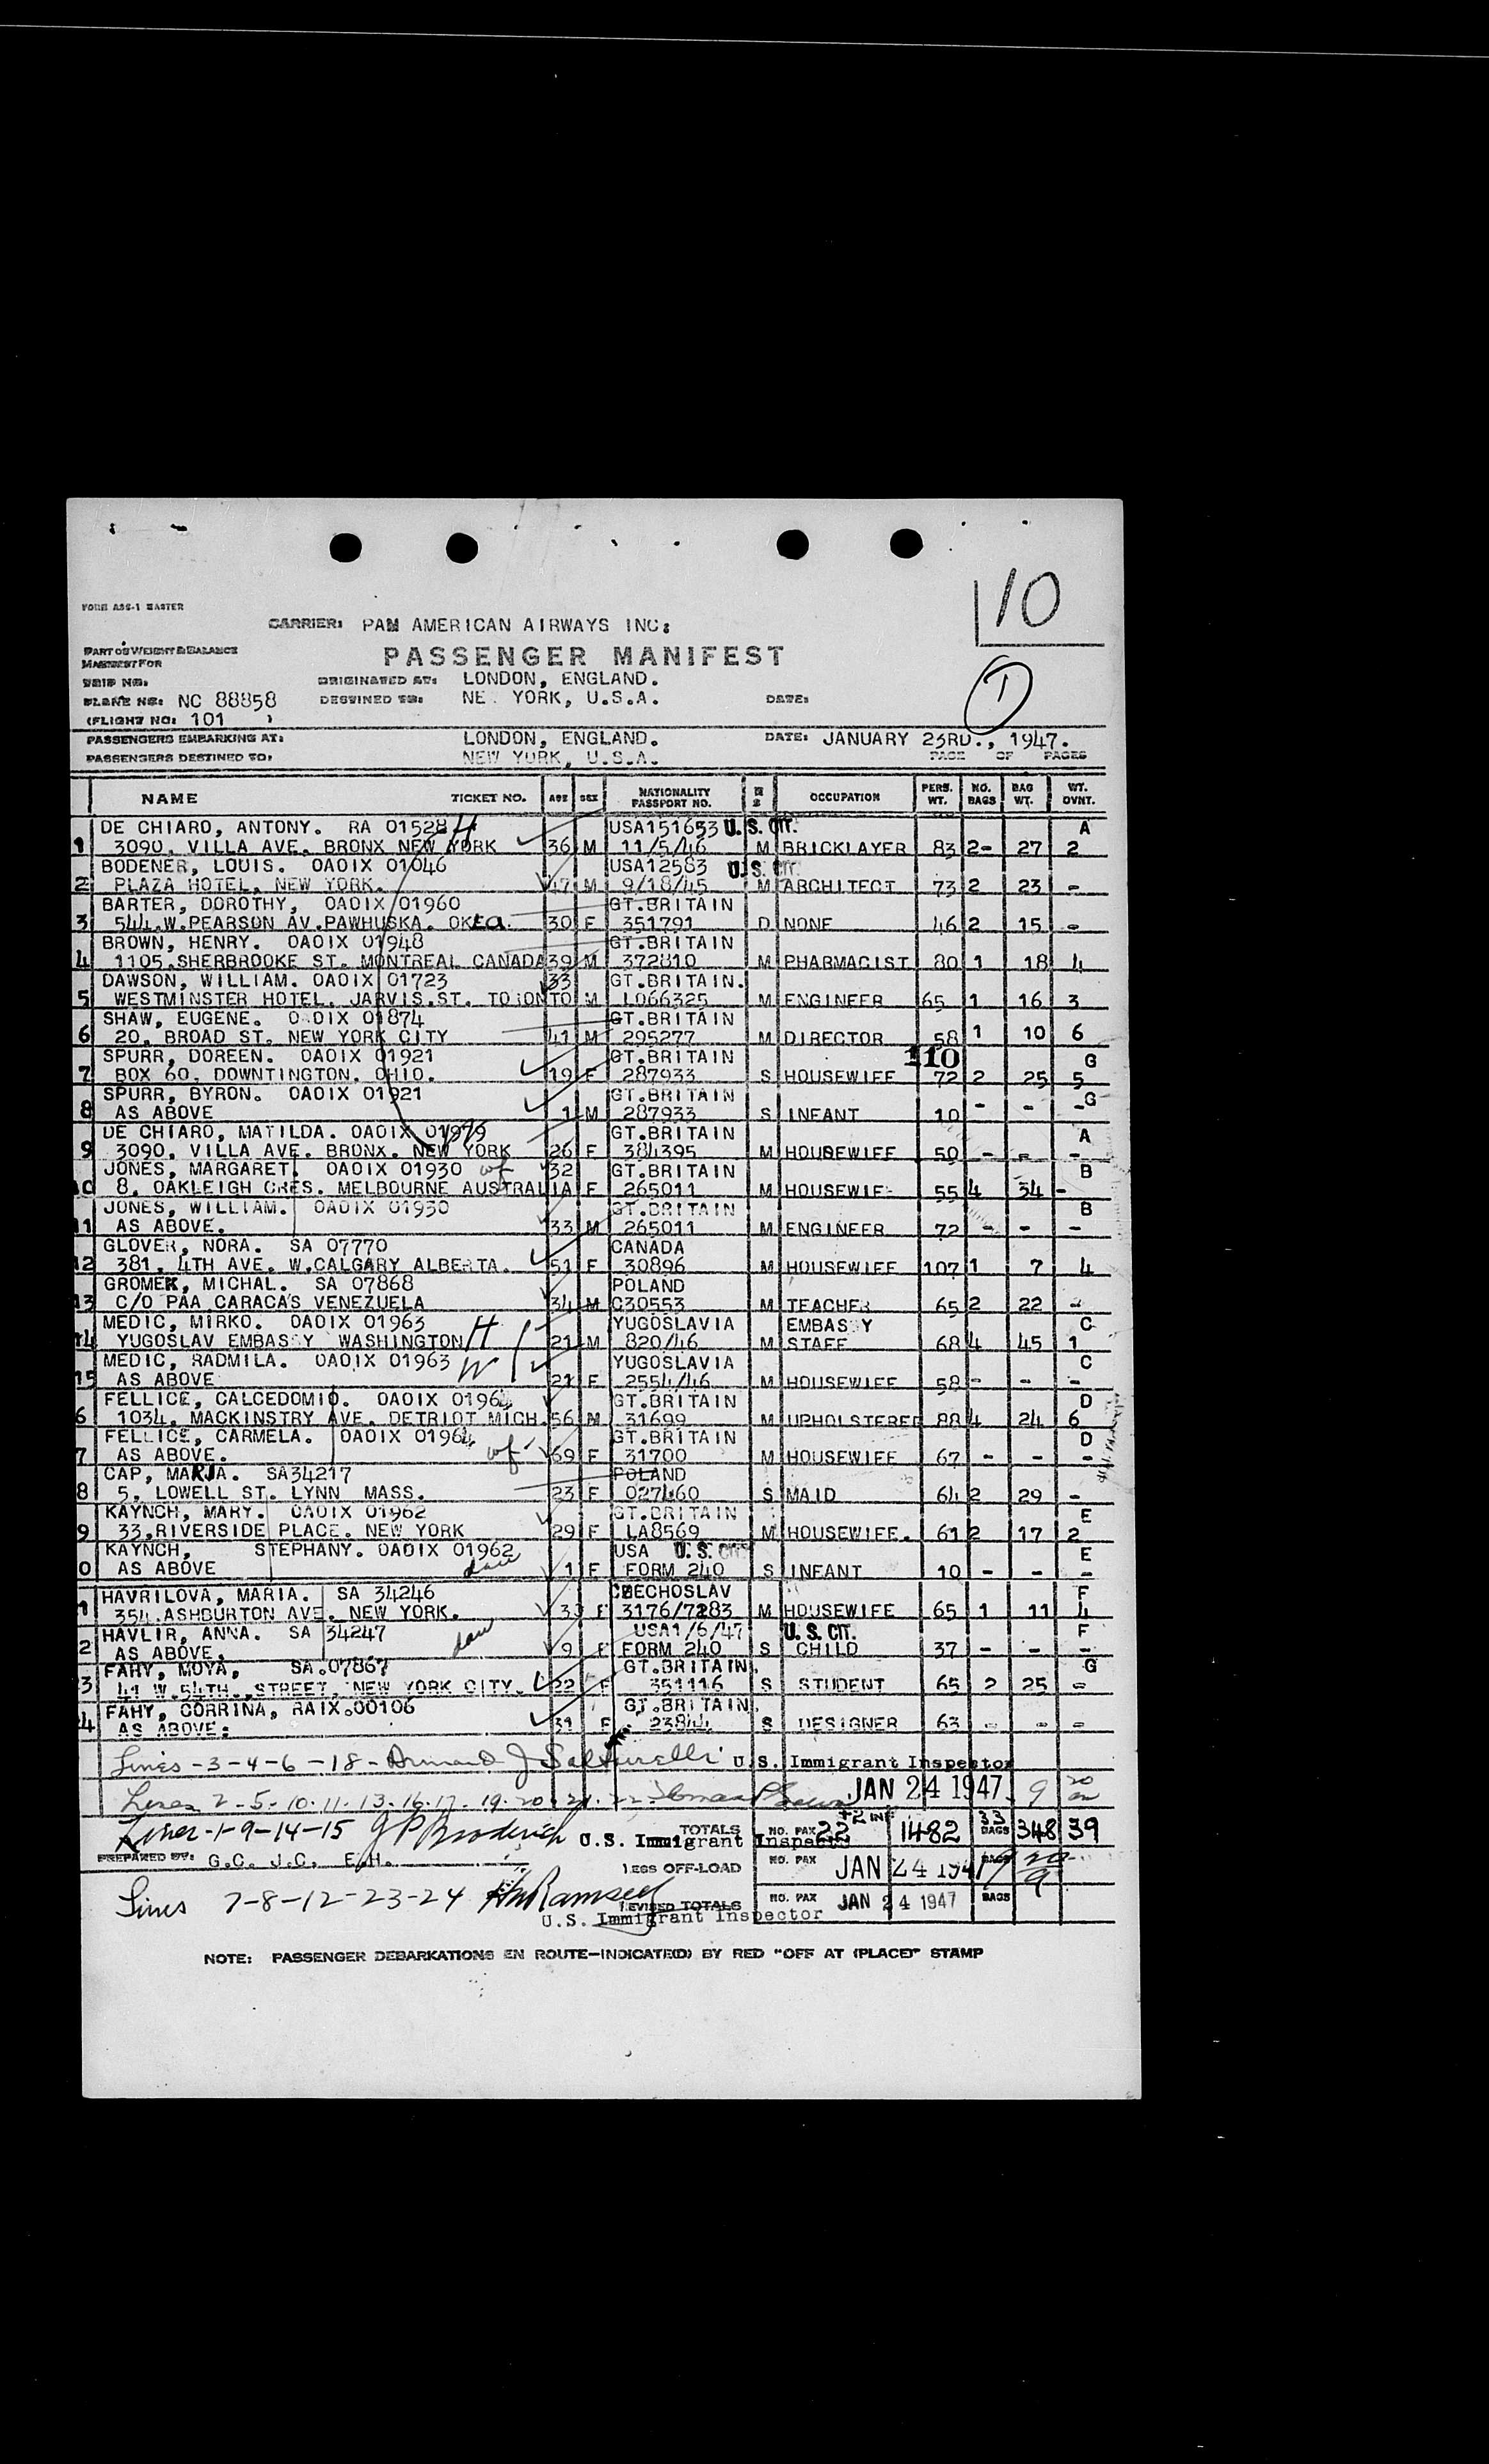 10
FORM ASS-1 MASTER
CARRIER: PAM AMERICAN AIRWAYS INC:
PART OF WEIGHT & BALANCE
MANIFEST FOR
PASSENGER MANIFEST
TRIP NO:
ORIGINATED AT: LONDON, ENGLAND.
PLANE NO: NC 88858
DESTINED TO: NE. YORK, U.S.A.
DATE:
1
(FLIGHT NO: 101 )
PASSENGERS EMBARKING AT: LONDON, ENGLAND. DATE: JANUARY 23RD., 1947.
PASSENGERS DESTINED TO: NEW YORK, U.S.A. PAGE OF PAGES
NAME TICKET NO. AGE SEX NATIONALITY PASSPORT NO. OCCUPATION PERS. WT. NO. BAGS BAG WT. WT. OVNT.
DE CHIARO, ANTONY. RA 01528 H USA151653 U.S. CIT. A
1 3090. VILLA AVE. BRONX NEW YORK 36 M 11/5/46 M BRICKLAYER 83 2- 27 2
BODENER, LOUIS. OAOIX 01046 USA12583 U.S. CIT.
2 PLAZA HOTEL. NEW YORK. 47 M 9/18/45 M ARCHITECT 73 2 23 -
BARTER, DOROTHY, OAOIX 01960 GT.BRITAIN
3 544.W.PEARSON AV.PAWHUSKA. OKLA. 30 F 351791 D NONE 46 2 15 -
BROWN, HENRY. OAOIX 01948 GT.BRITAIN
4 1105.SHERBROOKE ST. MONTREAL CANADA 39 M 372810 M PHARMACIST 80 1 18 4
DAWSON, WILLIAM. OAOIX 01723 33 GT.BRITAIN.
5 WESTMINSTER HOTEL. JARVIS.ST. TORONTO M L066325 M ENGINEER 65 1 16 3
SHAW, EUGENE. OAOIX 01874 GT.BRITAIN
6 20. BROAD ST. NEW YORK CITY 41 M 295277 M DIRECTOR 58 1 10 6
SPURR, DOREEN. OAOIX 01921 GT.BRITAIN 110 G
7 BOX 60. DOWNTINGTON. OHIO. 19 F 287933 S HOUSEWIFE 72 2 25 5
SPURR, BYRON. OAOIX 01921 GT.BRITAIN G
8 AS ABOVE 1 M 287933 S INFANT 10 - - -
DE CHIARO, MATILDA. OAOIX 01979 GT.BRITAIN A
9 3090. VILLA AVE. BRONX. NEW YORK 26 F 384395 M HOUSEWIFE 50 - - -
JONES, MARGARET. OAOIX 01930 wf 32 GT.BRITAIN B
10 8. OAKLEIGH CRES. MELBOURNE AUSTRALIA F 265011 M HOUSEWIFE 55 4 34 -
JONES, WILLIAM. OAOIX 01930 GT.BRITAIN B
11 AS ABOVE. 33 M 265011 M ENGINEER 72 - - -
GLOVER, NORA. SA 07770 CANADA
12 381. 4TH AVE. W.CALGARY ALBERTA. 51 F 30896 M HOUSEWIFE 107 1 7 4
GROMEK, MICHAL. SA 07868 POLAND
13 C/O PAA CARACAS VENEZUELA 34 M C30553 M TEACHER 65 2 22 -
MEDIC, MIRKO. OAOIX 01963 H YUGOSLAVIA EMBASSY C
14 YUGOSLAV EMBASSY WASHINGTON 21 M 820/46 M STAFF 68 4 45 1
MEDIC, RADMILA. OAOIX 01963 W YUGOSLAVIA C
15 AS ABOVE 21 F 2554/46 M HOUSEWIFE 58 - - -
FELLICE, CALCEDOMIO. OAOIX 01964 GT.BRITAIN D
6 1034. MACKINSTRY AVE. DETRIOT MICH. 56 M 31699 M UPHOLSTERER 88 4 24 6
FELLICE, CARMELA. OAOIX 01964 wf GT.BRITAIN D
7 AS ABOVE. 69 F 31700 M HOUSEWIFE 67 - - -
CAP, MARJA. SA34217 POLAND
8 5. LOWELL ST. LYNN MASS. 23 F 027460 S MAID 64 2 29 -
KAYNCH, MARY. OAOIX 01962 GT.BRITAIN E
9 33.RIVERSIDE PLACE. NEW YORK 29 F LA8569 M HOUSEWIFE. 61 2 17 2
KAYNCH, STEPHANY. OAOIX 01962 USA U.S. CIT. E
0 AS ABOVE dau 1 F FORM 240 S INFANT 10 - - -
HAVRILOVA, MARIA. SA 34246 CZECHOSLAV F
1 354.ASHBURTON AVE. NEW YORK. 33 F 3176/7283 M HOUSEWIFE 65 1 11 4
HAVLIR, ANNA. SA 34247 dau USA1/6/47 U.S. CIT. F
2 AS ABOVE. 9 F FORM 240 S CHILD 37 - - -
FAHY, MOYA, SA.07867 GT.BRITAIN. G
3 41 W.54TH.,STREET, NEW YORK CITY. 22 F 351116 S STUDENT 65 2 25 -
FAHY, CORRINA, RAIX.00106 GT.BRITAIN.
4 AS ABOVE: 31 F 23844 S DESIGNER 63 - - -
Lines -3-4-6-18- Armand J Salturelli U.S. Immigrant Inspector
JAN 24 1947
Lines 2-5-10-11-13-16-17-19-20-21-22 9
Lines -1-9-14-15 J P Broderich U.S. Immigrant Inspector TOTALS NO. PAX 22 +2 INF 1482 33 BAGS 348 39
PREPARED BY: G.C. J.C. E.H. LESS OFF-LOAD NO. PAX JAN 24 1947 BAGS
Lines 7-8-12-23-24 HmRamsey REVISED TOTALS NO. PAX JAN 24 1947 BAGS
U.S. Immigrant Inspector
NOTE: PASSENGER DEBARKATIONS EN ROUTE-INDICATE(D) BY RED "OFF AT (PLACE)" STAMP